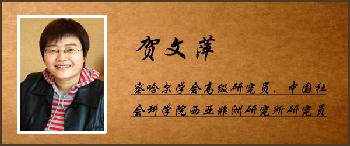 贺文萍
察哈尔学会高级研究员、中国社
会科学院西亚非洲研究所研究员